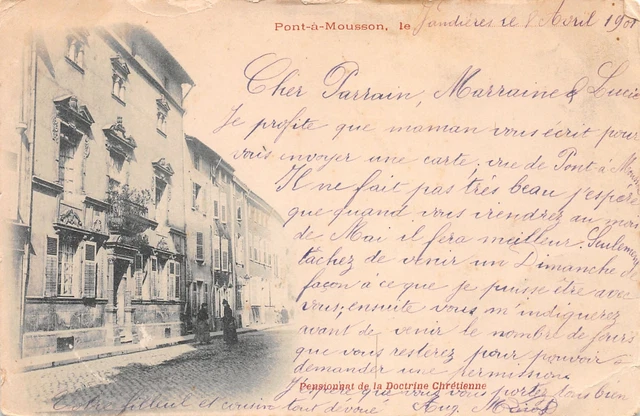 Pont-à-Mousson, le Jandières le 8 Avril 190
Cher Parrain, Marraine & Lucie
Je profite que maman vous écrit pour
vous envoyer une carte, vue de Pont-à-Mous
Il ne fait pas très beau j'espère
que quand vous viendrez au moi
de Mai il fera meilleur. Seulement
tachez de venir un Dimanche de
façon a ce que je puisse être avec
vous, ensuite vous m'indiquerez
avant de venir le nombre de jours
que vous resterez pour pouvoir
demander une permission
Pensionnat de la Doctrine Chrétienne
J'espère que vous vous portez tous bien
Votre filleul et cousin tout dévoué Aug.